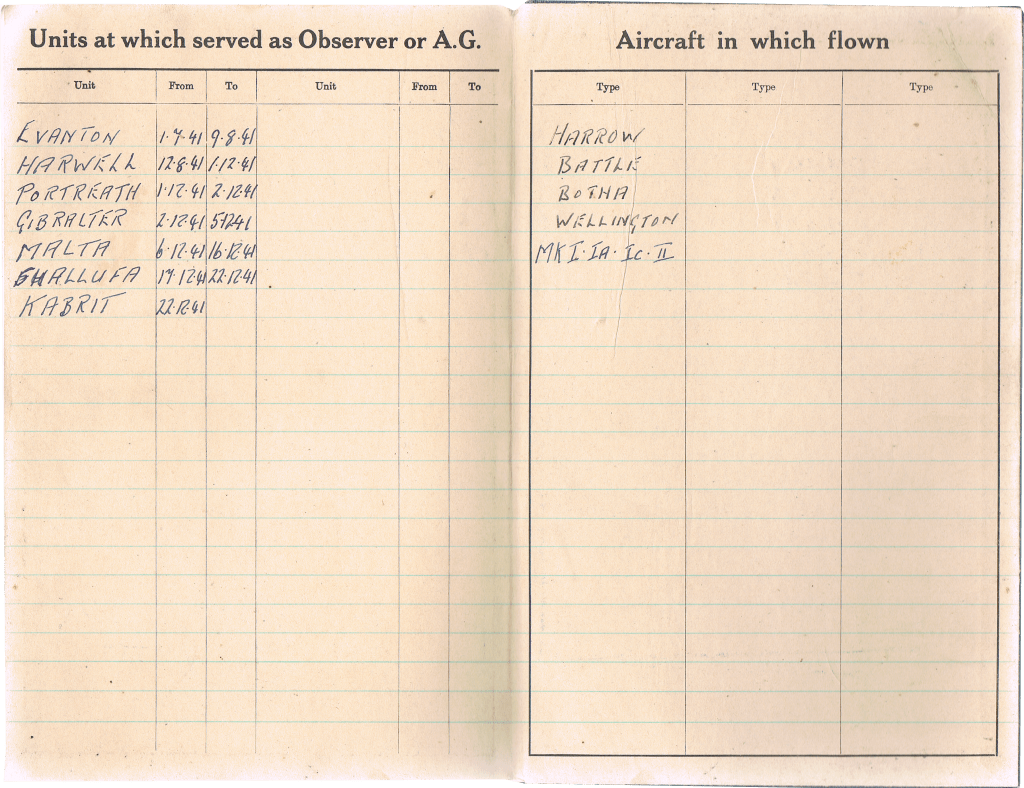 Units at which served as Observer or A.G.
Unit From To Unit From To
EVANTON 1·7·41 9·8·41
HARWELL 12·8·41 1·12·41
PORTREATH 1·12·41 2·12·41
GIBRALTER 2·12·41 5·12·41
MALTA 6·12·41 16·12·41
SHALLUFA 17·12·41 22·12·41
KABRIT 22·12·41
Aircraft in which flown
Type Type Type
HARROW
BATTLE
BOTHA
WELLINGTON
MK I· IA· IC· II